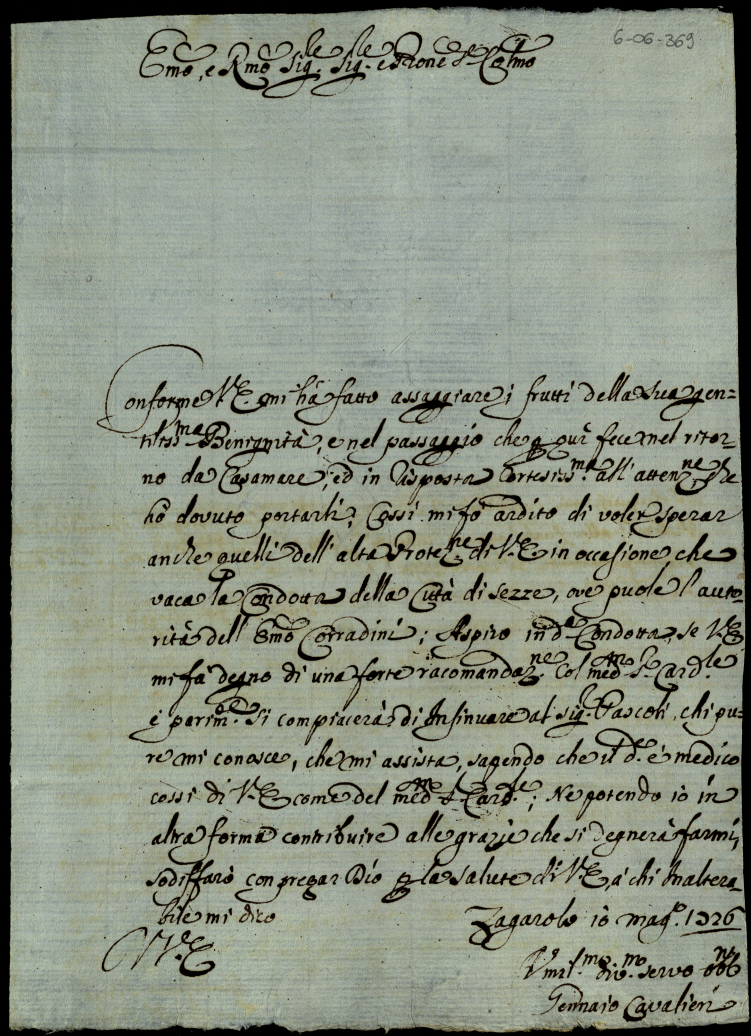 6-06-369
Emo, e Rmo Sig.re Sig.re e Prone Colmo
Conforme V.E. mi hà fatto assaggiare i frutti della sua gen=
tiliss.ma Benignità, e nel passaggio che p qui fece nel ritor=
no da Casamare, ed in risposta cortesiss.ma all'attenz.ne che
hò dovuto portarli; Cossì mi fò ardito di voler sperar
anche quelli dell'alta Protez.ne di V.E. in occasione che
vaca la Condotta della Città di Sezze, ove puole l'auto=
rità dell'Emo Corradini; Aspiro in d.a Condotta, se V.E.
mi fà degno di una forte racomandaz.ne col med.mo S.r Card.le
e parim.te si compiacerà di insinuare al Sig.r Pascoli, chi pu=
re mi conosce, che mi assista, sapendo che il d.o è medico
cossì di V.E. come del med.mo S.r Card.le; Ne potendo io in
altra forma contribuire alle grazie che si degnerà farmi,
sodisfarò con pregar Dio p la salute di V.E. à chi inaltera=
bile mi dico
Zagarolo 10 mag.o 1726
V.E.
Vmil.mo div.mo servo obb.mo
Gennaro Cavalieri